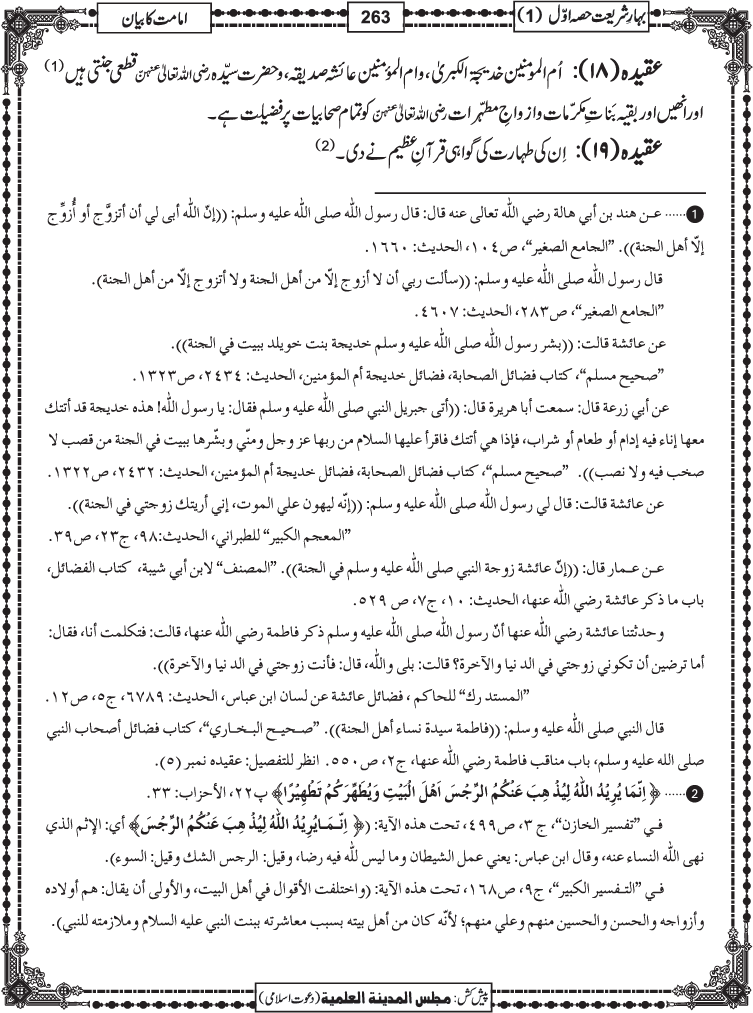 بہارِ شریعت حصہ اوّل (1)
263
امامت کا بیان
عقیدہ (۱۸): اُم المومنین خدیجۃ الکبریٰ، وام المؤمنین عائشہ صدیقہ، وحضرت سیّدہ رضی اللہ تعالیٰ عنہن قطعی جنتی ہیں (1)
اور انھیں اور بقیہ بناتِ مکرّمات وازواجِ مطہّرات رضی اللہ تعالیٰ عنہن کو تمام صحابیات پر فضیلت ہے۔
عقیدہ (۱۹): اِن کی طہارت کی گواہی قرآنِ عظیم نے دی۔ (2)
1 ...... عـن هند بن أبي هالة رضي الله تعالى عنه قال: قال رسول الله صلى الله عليه وسلم: ((إنّ الله أبى لي أن أتزوَّج أو أُزوِّج
إلّا أهل الجنة)). ”الجامع الصغير“، ص١٠٤، الحديث: ١٦٦٠.
قال رسول الله صلى الله عليه وسلم: ((سألت ربي أن لا أزوج إلّا من أهل الجنة ولا أتزوج إلّا من أهل الجنة).
”الجامع الصغير“، ص٢٨٣، الحديث: ٤٦٠٧.
عن عائشة قالت: ((بشر رسول الله صلى الله عليه وسلم خديجة بنت خويلد ببيت في الجنة)).
”صحيح مسلم“، كتاب فضائل الصحابة، فضائل خديجة أم المؤمنين، الحديث: ٢٤٣٤، ص١٣٢٣.
عن أبي زرعة قال: سمعت أبا هريرة قال: ((أتى جبريل النبي صلى الله عليه وسلم فقال: يا رسول الله! هذه خديجة قد أتتك
معها إناء فيه إدام أو طعام أو شراب، فإذا هي أتتك فاقرأ عليها السلام من ربها عز وجل ومنّي وبشّرها ببيت في الجنة من قصب لا
صخب فيه ولا نصب)). ”صحيح مسلم“، كتاب فضائل الصحابة، فضائل خديجة أم المؤمنين، الحديث: ٢٤٣٢، ص١٣٢٢.
عن عائشة قالت: قال لي رسول الله صلى الله عليه وسلم: ((إنّه ليهون علي الموت، إني أريتك زوجتي في الجنة)).
”المعجم الكبير“ للطبراني، الحديث:٩٨، ج٢٣، ص٣٩.
عـن عـمار قال: ((إنّ عائشة زوجة النبي صلى الله عليه وسلم في الجنة)). ”المصنف“ لابن أبي شيبة، كتاب الفضائل،
باب ما ذكر عائشة رضي الله عنها، الحديث: ١٠، ج٧، ص ٥٢٩.
وحدثتنا عائشة رضي الله عنها أنّ رسول الله صلى الله عليه وسلم ذكر فاطمة رضي الله عنها، قالت: فتكلمت أنا، فقال:
أما ترضين أن تكوني زوجتي في الد نيا والآخرة؟ قالت: بلى والله، قال: فأنت زوجتي في الد نيا والآخرة)).
”المستد رك“ للحاكم ، فضائل عائشة عن لسان ابن عباس، الحديث: ٦٧٨٩، ج٥، ص١٢.
قال النبي صلى الله عليه وسلم: ((فاطمة سيدة نساء أهل الجنة)). ”صـحيـح البـخـاري“، كتاب فضائل أصحاب النبي
صلى الله عليه وسلم، باب مناقب فاطمة رضي الله عنها، ج٢، ص٥٥٠. انظر للتفصيل: عقيده نمبر (٥).
2 ...... ﴿ اِنَّمَا يُرِيْدُ اللّٰهُ لِيُذْهِبَ عَنْكُمُ الرِّجْسَ اَهْلَ الْبَيْتِ وَيُطَهِّرَكُمْ تَطْهِيْرًا ﴾ پ٢٢، الأحزاب: ٣٣.
فـي ”تفسير الخازن“، ج ٣، ص٤٩٩، تحت هذه الآية: (﴿ اِنَّـمَـا يُرِيْدُ اللّٰهُ لِيُذْهِبَ عَنْكُمُ الرِّجْسَ ﴾ أي: الإثم الذي
نهى الله النساء عنه، وقال ابن عباس: يعني عمل الشيطان وما ليس لله فيه رضا، وقيل: الرجس الشك وقيل: السوء).
فـي ”التـفسير الكبير“، ج٩، ص١٦٨، تحت هذه الآية: (واختلفت الأقوال في أهل البيت، والأولى أن يقال: هم أولاده
وأزواجه والحسن والحسين منهم وعلي منهم؛ لأنّه كان من أهل بيته بسبب معاشرته ببنت النبي عليه السلام وملازمته للنبي).
پیش کش: مجلس المدينة العلمية (دعوت اسلامی)